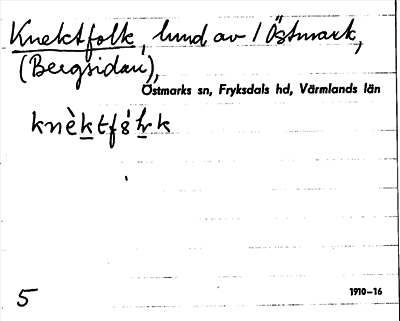 Knektfolk, lund av / Östmark,
(Bergsidan),
Östmarks sn, Fryksdals hd, Värmlands län
5
1910–16